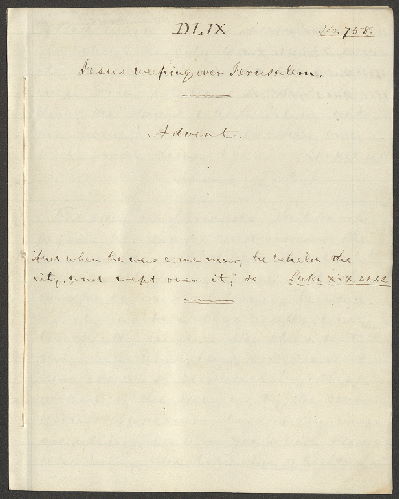 DLIX 758.
Jesus weeping over Jerusalem.
Advent.
And when he was come near, he beheld the
city, and wept over it; &c Luke XIX